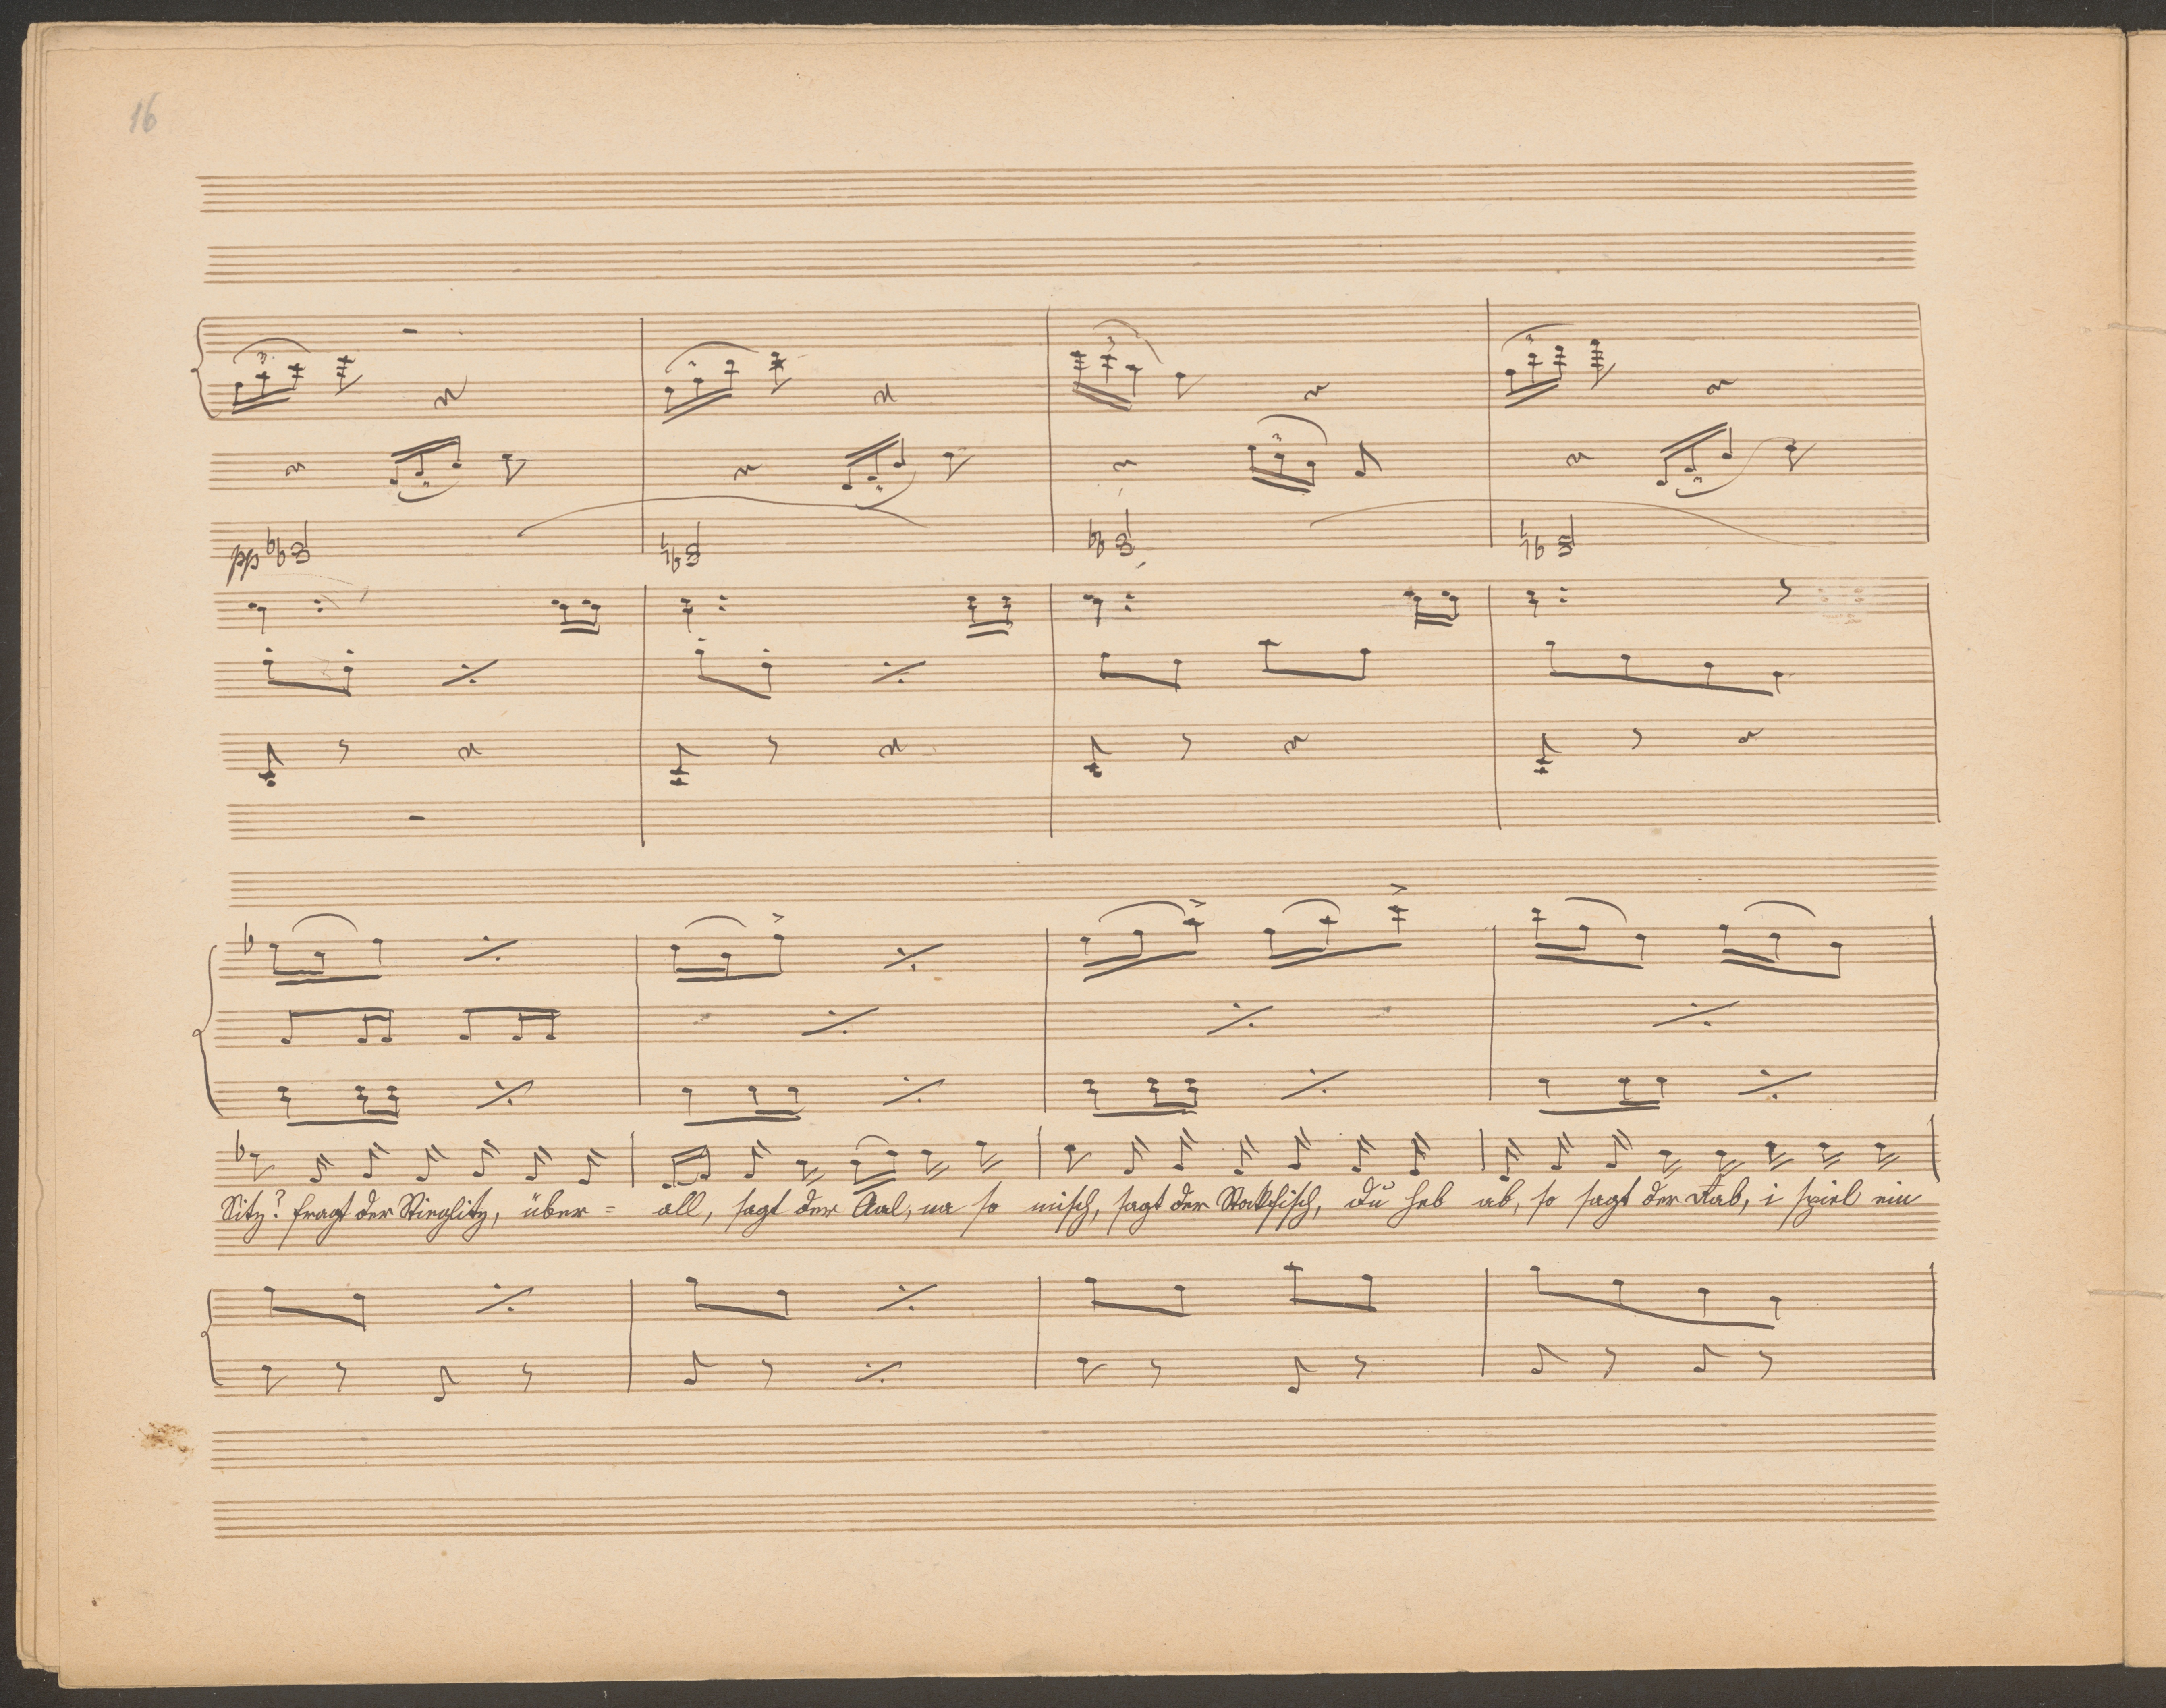 16
3
3
3
3
3
3
3
pp
Sitz? fragt der Stieglitz, über= all, sagt der Aal, na so misch, sagt der Stockfisch, du heb ab, so sagt der Rab, i spiel ein